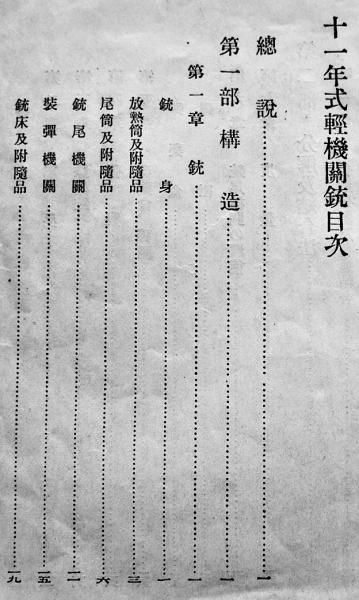 十一年式輕機關銃目次
總說……一
第一部 構造……一
第一章 銃……一
銃身……一
放熱筒及附隨品……三
尾筒及附隨品……六
銃尾機關……一一
裝彈機關……一五
銃床及附隨品……一九